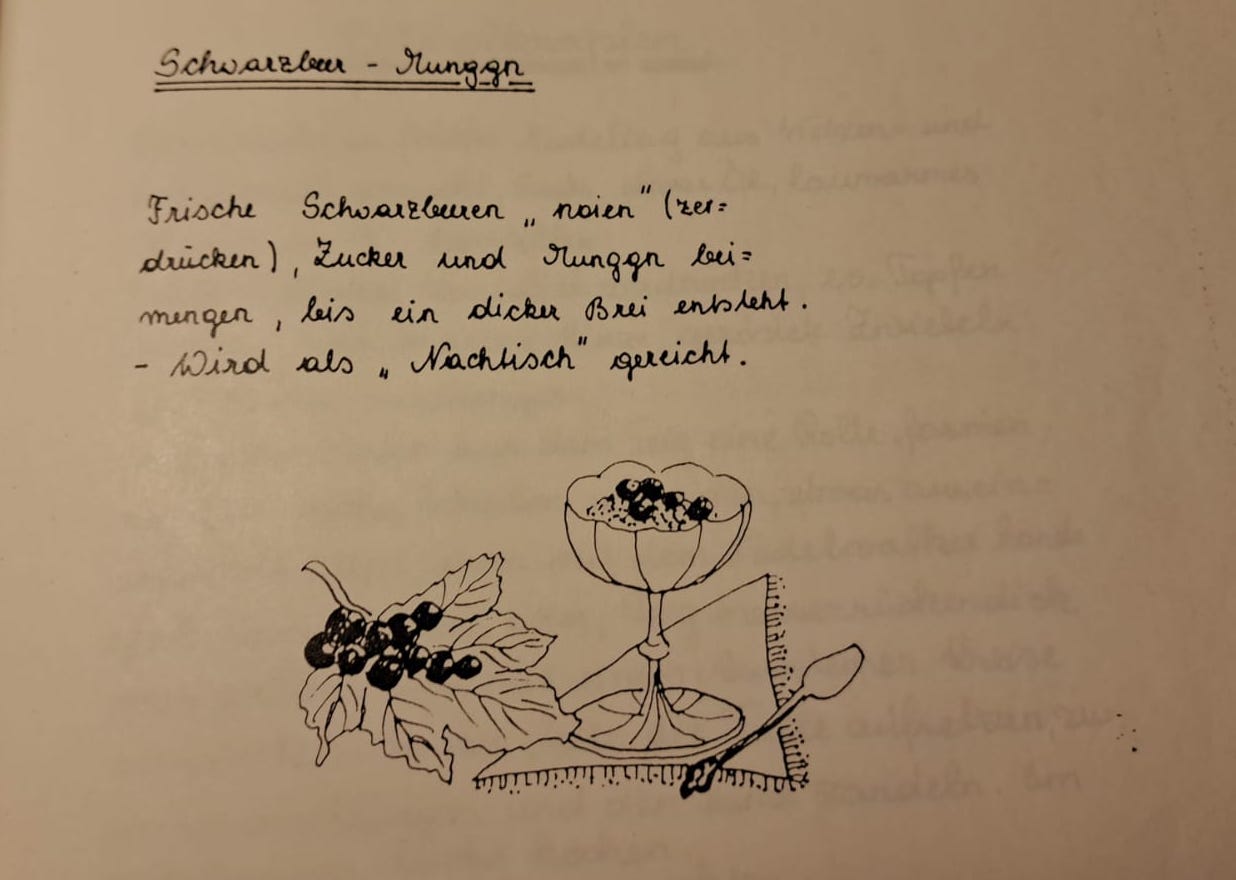 Schwarzbeer - Munggn
Frische Schwarzbeeren „noien" (zer=
drücken), Zucker und Munggn bei=
mengen, bis ein dicker Brei entsteht.
- Wird als „Nachtisch" gereicht.